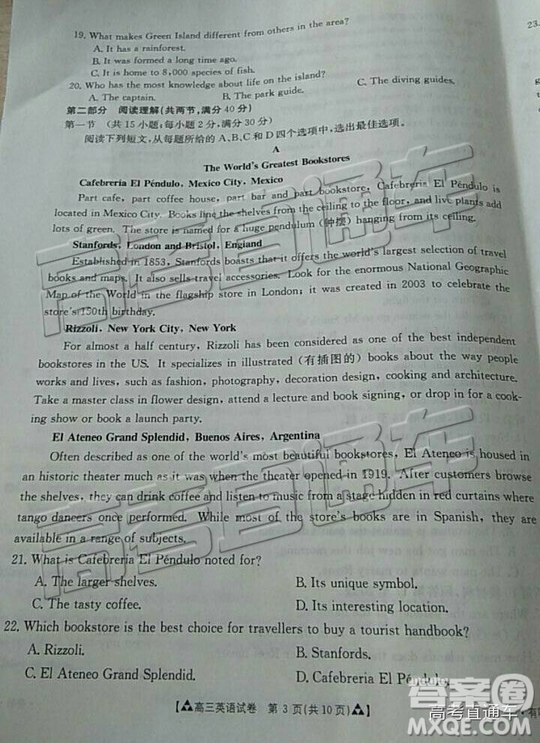 19. What makes Green Island different from others in the area?
A. It has a rainforest.
B. It was formed a long time ago.
C. It is home to 8,000 species of fish.
20. Who has the most knowledge about life on the island?
A. The captain. B. The park guide. C. The diving guides.
23.
第二部分 阅读理解(共两节,满分40分)
第一节 (共15小题;每小题2分,满分30分)
阅读下列短文,从每题所给的A、B、C和D四个选项中,选出最佳选项。
A
The World's Greatest Bookstores
Cafebreria El Péndulo, Mexico City, Mexico
Part cafe, part coffee house, part bar and part bookstore, Cafebreria El Péndulo is
located in Mexico City. Books line the shelves from the ceiling to the floor, and live plants add
lots of green. The store is named for a huge pendulum (钟摆) hanging from its ceiling.
Stanfords, London and Bristol, England
Established in 1853, Stanfords boasts that it offers the world's largest selection of travel
books and maps. It also sells travel accessories. Look for the enormous National Geographic
Map of the World in the flagship store in London; it was created in 2003 to celebrate the
store's 150th birthday.
Rizzoli, New York City, New York
For almost a half century, Rizzoli has been considered as one of the best independent
bookstores in the US. It specializes in illustrated (有插图的) books about the way people
works and lives, such as fashion, photography, decoration design, cooking and architecture.
Take a master class in flower design, attend a lecture and book signing, or drop in for a cook-
ing show or book a launch party.
El Ateneo Grand Splendid, Buenos Aires, Argentina
Often described as one of the world's most beautiful bookstores, El Ateneo is housed in
an historic theater much as it was when the theater opened in 1919. After customers browse
the shelves, they can drink coffee and listen to music from a stage hidden in red curtains where
tango dancers once performed. While most of the store's books are in Spanish, they are
available in a range of subjects.
21. What is Cafebreria El Péndulo noted for?
A. The larger shelves. B. Its unique symbol.
C. The tasty coffee. D. Its interesting location.
22. Which bookstore is the best choice for travellers to buy a tourist handbook?
A. Rizzoli. B. Stanfords.
C. El Ateneo Grand Splendid. D. Cafebreria El Péndulo.
【高三英语试卷 第 3 页(共 10 页)】
高考直通车
答案圈
高考直通车
MXQE.COM